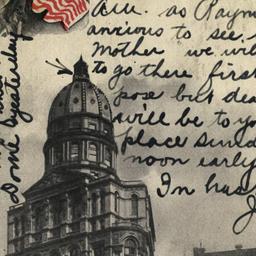 Am. as Raym
anxious to see.
Mother we will
to go there first
pose but dea
will be to yo
place sund
noon early
In has
J
Dome
yesterday